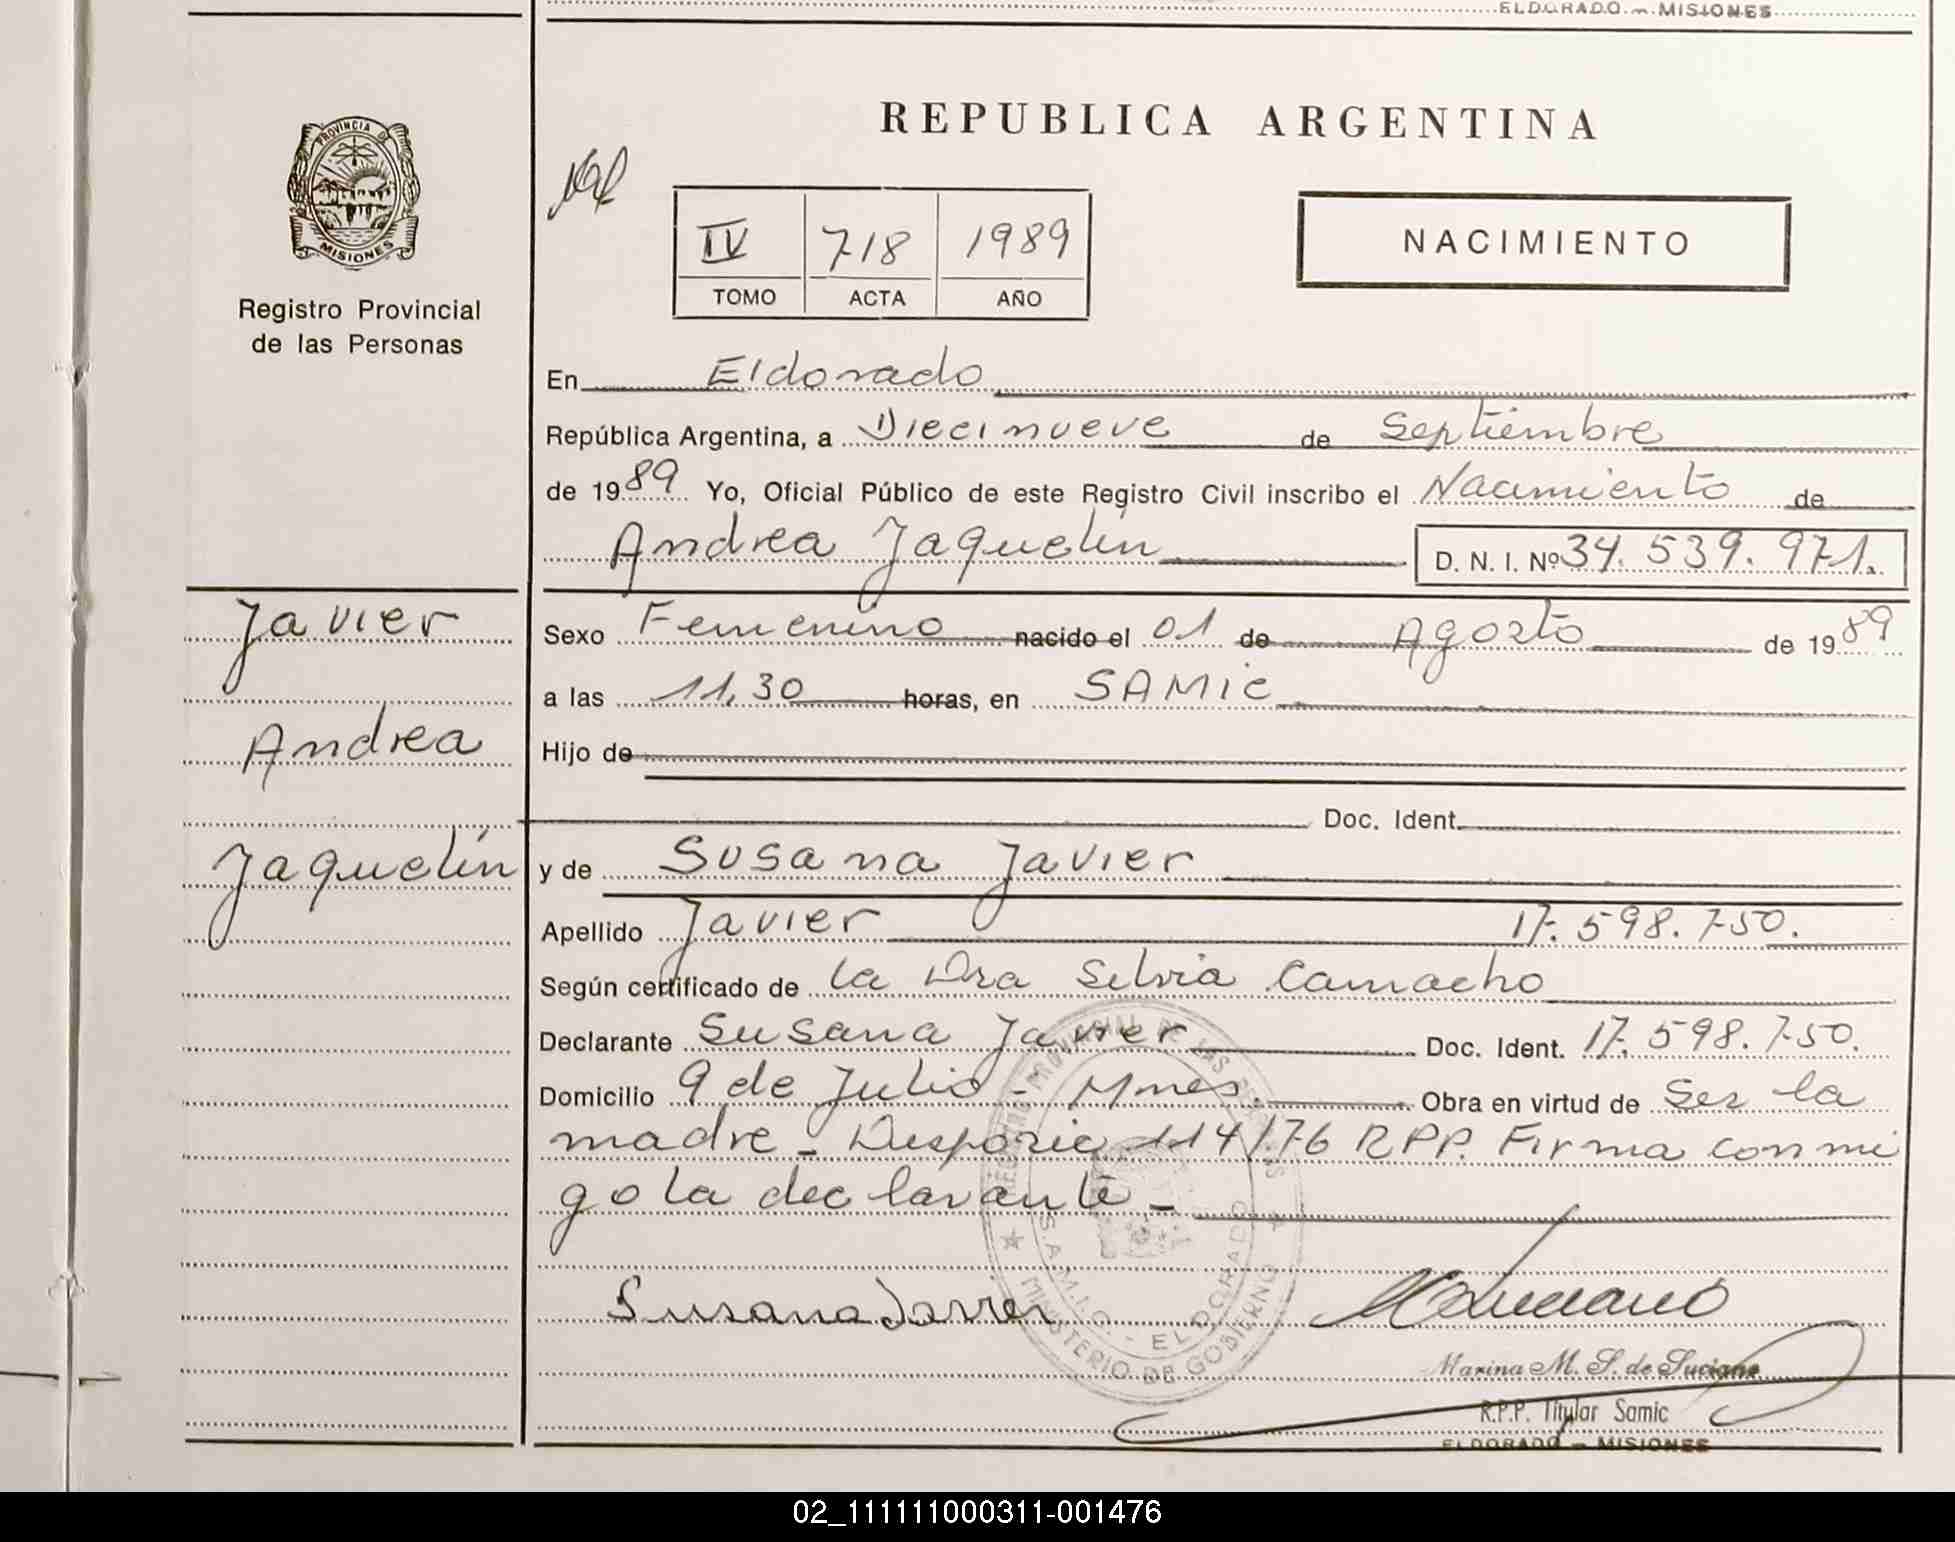 ELDORADO - MISIONES
REPUBLICA ARGENTINA
PROVINCIA DE
MISIONES
Registro Provincial
de las Personas
IV 718 1989
TOMO ACTA AÑO
NACIMIENTO
En Eldorado
República Argentina, a Diecinueve de Septiembre
de 1989 Yo, Oficial Público de este Registro Civil inscribo el Nacimiento de
Andrea Jaquelin D. N. I. Nº 34.539.971.
Javier
Sexo Femenino nacido el 01 de Agosto de 1989
a las 11,30 horas, en SAMIC
Andrea
Hijo de
Doc. Ident.
Jaquelín
y de Susana Javier
Apellido Javier 17.598.750.
Según certificado de la Dra Silvia Camacho
Declarante Susana Javier Doc. Ident. 17.598.750.
Domicilio 9 de Julio - Mnes. Obra en virtud de Ser la
madre - 114/76 RPP. Firma con mi
go la declarante -
Susana Javier
REGISTRO PROVINCIAL DE LAS PERSONAS
S.A.M.I.C. - ELDORADO
MINISTERIO DE GOBIERNO
Marina M. S. de Luciano
R.P.P. Titular Samic
ELDORADO - MISIONES
02_111111000311-001476